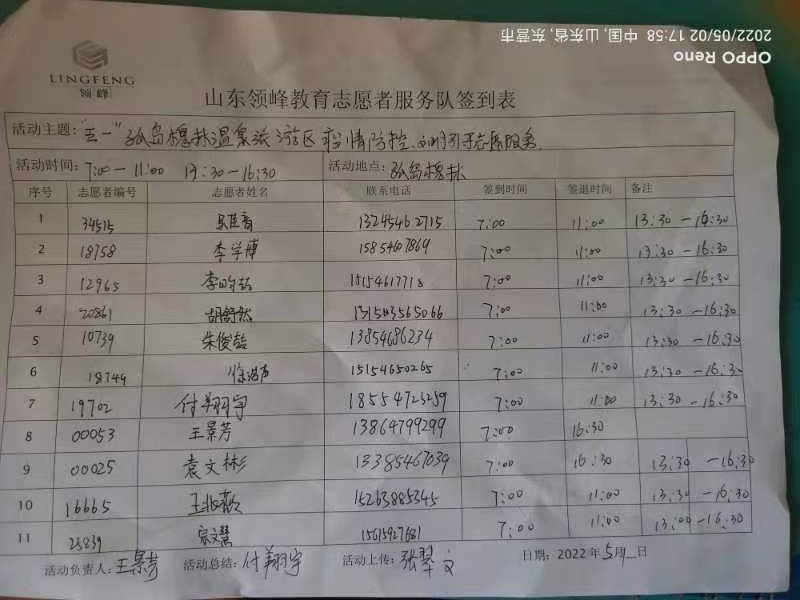 2022/05/02 17:58 中国, 山东省, 东营市
OPPO Reno
LINGFENG
领峰
山东领峰教育志愿者服务队签到表
活动主题: "五一"孤岛槐林温泉旅游区疫情防控志愿服务
活动时间: 7:00-11:00 13:30-16:30 活动地点: 孤岛槐林
序号 志愿者编号 志愿者姓名 联系电话 签到时间 签退时间 备注
1 34515 13245462715 7:00 11:00 13:30-16:30
2 18758 李学博 7:00 11:00 13:30-16:30
3 12965 15154617718 7:00 11:00 13:30-16:30
4 20861 胡舒然 7:00 11:00 13:30-16:30
5 10739 朱俊乾 13854686234 7:00 11:00 13:30-16:30
6 18744 15154650265 7:00 11:00 13:30-16:30
7 19702 付翔宇 18554723259 7:00 11:00 13:30-16:30
8 00053 王景芳 13864799299 7:00 16:30
9 00025 袁文彬 13385467039 7:00 16:30 13:30-16:30
10 16665 15263885345 7:00 11:00 13:30-16:30
11 23839 宗文慧 7:00 11:00 13:00-16:30
活动负责人: 王景芳 活动总结: 付翔宇 活动上传: 张翠文 日期: 2022年5月 日